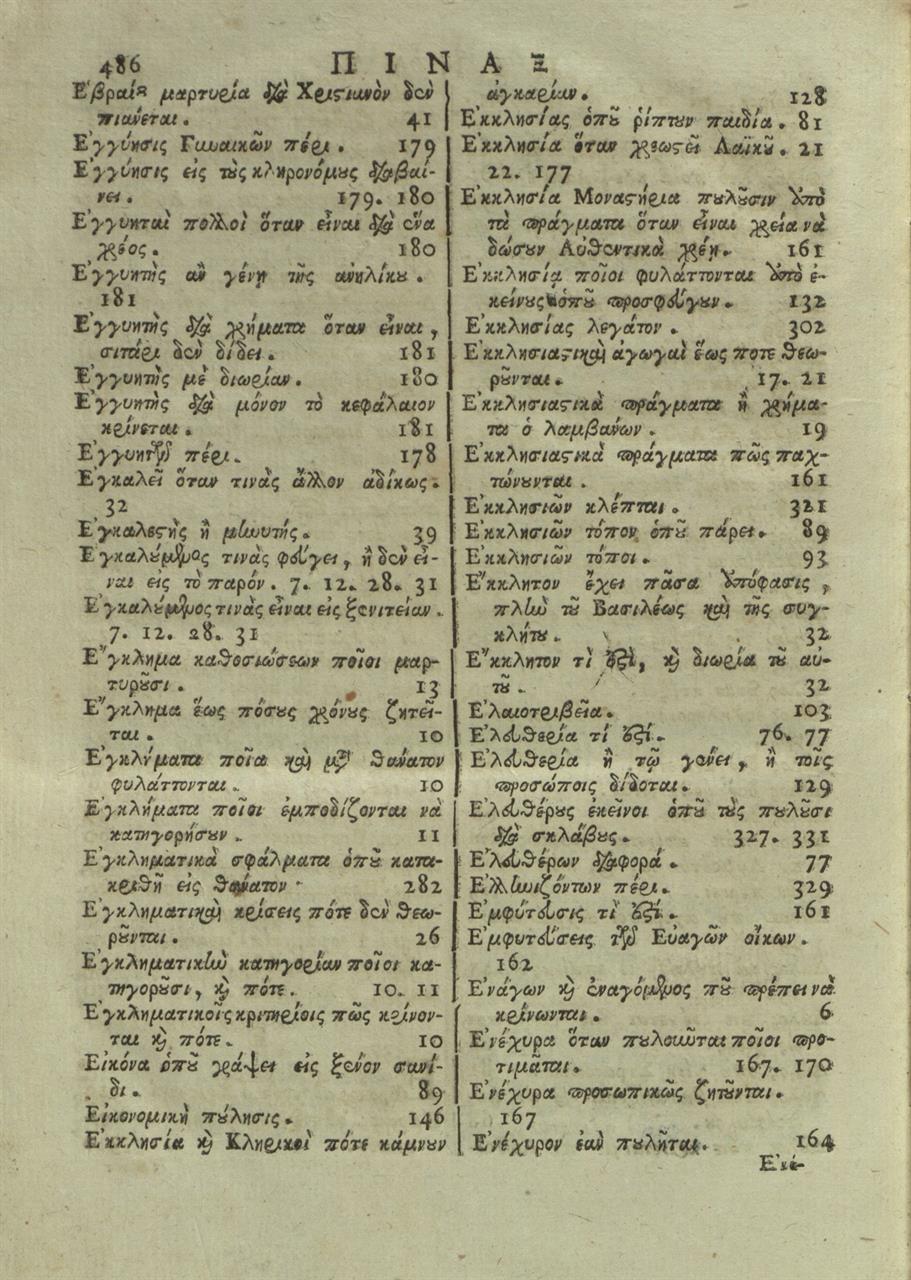 486 ΠΙΝΑΞ
Ἑβραίου μαρτυρία διὰ Χριστιανὸν δὲν
πιάνεται. 41
Ἐγγύησις Γυναικῶν πέρι. 179
Ἐγγύησις εἰς τοὺς κληρονόμους διαβαί-
νει. 179. 180
Ἐγγυηταὶ πολλοὶ ὅταν εἶναι διὰ ἕνα
χρέος. 180
Ἐγγυητὴς ἂν γένῃ τῆς ἀνηλίκου.
181
Ἐγγυητὴς διὰ χρήματα ὅταν εἶναι,
σιτάρι δὲν δίδει. 181
Ἐγγυητὴς μὲ διωρίαν. 180
Ἐγγυητὴς διὰ μόνον τὸ κεφάλαιον
κρίνεται. 181
Ἐγγυητῶν πέρι. 178
Ἐγκαλεῖ ὅταν τινὰς ἄλλον ἀδίκως.
32
Ἐγκαλεστὴς ἢ μηνυτής. 39
Ἐγκαλούμενος τινὰς φεύγει, ἢ δὲν εἶ-
ναι εἰς τὸ παρόν. 7. 12. 28. 31
Ἐγκαλούμενος τινὰς εἶναι εἰς ξενιτείαν.
7. 12. 28. 31
Ἔγκλημα καθοσιώσεων ποῖοι μαρ-
τυροῦσι. 13
Ἔγκλημα ἕως πόσους χρόνους ζητεῖ-
ται. 10
Ἐγκλήματα ποῖα καὶ μετὰ θάνατον
φυλάττονται. 10
Ἐγκλήματα ποῖοι ἐμποδίζονται νὰ
κατηγορήσουν. 11
Ἐγκληματικὰ σφάλματα ὁποῦ κατα-
κριθῇ εἰς θάνατον 282
Ἐγκληματικαὶ κρίσεις πότε δὲν θεω-
ροῦνται. 26
Ἐγκληματικὴν κατηγορίαν ποῖοι κα-
τηγοροῦσι, καὶ πότε. 10. 11
Ἐγκληματικοῖς κριτηρίοις πῶς κρίνον-
ται καὶ πότε. 10
Εἰκόνα ὁποῦ γράψει εἰς ξένον σανί-
δι. 89
Εἰκονομικὴ πούλησις. 146
Ἐκκλησία καὶ Κληρικοὶ πότε κάμνουν
ἀγκαρίαν. 128
Ἐκκλησίας ὁποῦ ῥίπτουν παιδία. 81
Ἐκκλησία ὅταν χρεωστεῖ Λαϊκοῦ. 21
22. 177
Ἐκκλησία Μοναστήρια πουλοῦσιν ἀπὸ
τὰ πράγματα ὅταν εἶναι χρεία νὰ
δώσουν Αὐθεντικὰ χρέη. 161
Ἐκκλησία ποῖοι φυλάττονται ἀπὸ ἐ-
κείνους ὁποῦ προσφεύγουν. 132
Ἐκκλησίας λεγάτον. 302
Ἐκκλησιαστικαὶ ἀγωγαὶ ἕως ποτε θεω-
ροῦνται. 17. 21
Ἐκκλησιαστικὰ πράγματα ἢ χρήμα-
τα ὁ λαμβάνων. 19
Ἐκκλησιαστικὰ πράγματα πῶς παχ-
τώνουνται. 161
Ἐκκλησιῶν κλέπται. 321
Ἐκκλησιῶν τόπον ὁποῦ πάρει. 89
Ἐκκλησιῶν τόποι. 93
Ἔκκλητον ἔχει πᾶσα ἀπόφασις,
πλὴν τοῦ Βασιλέως καὶ τῆς συγ-
κλήτου. 32
Ἔκκλητον τί ἐστί, καὶ διωρία τοῦ αὐ-
τοῦ. 32
Ἐλαιοτριβεῖα. 103
Ἐλευθερία τί ἐστί. 76. 77
Ἐλευθερία ἢ τῷ γένει, ἢ τοῖς
προσώποις δίδοται. 129
Ἐλευθέρους ἐκεῖνοι ὁποῦ τοὺς πουλοῦσι
διὰ σκλάβους. 327. 331
Ἐλευθέρων διαφορά. 77
Ἑλληνιζόντων πέρι. 329
Ἐμφύτευσις τί ἐστί. 161
Ἐμφυτεύσεις τῶν Εὐαγῶν οἴκων.
162
Ἐνάγων καὶ ἐναγόμενος ποῦ πρέπει νὰ
κρίνωνται. 6
Ἐνέχυρα ὅταν πουλοῦνται ποῖοι προ-
τιμᾶται. 167. 170
Ἐνέχυρα προσωπικῶς ζητοῦνται.
167
Ἐνέχυρον ἐὰν πουλῆται. 164
Ἐνέ-